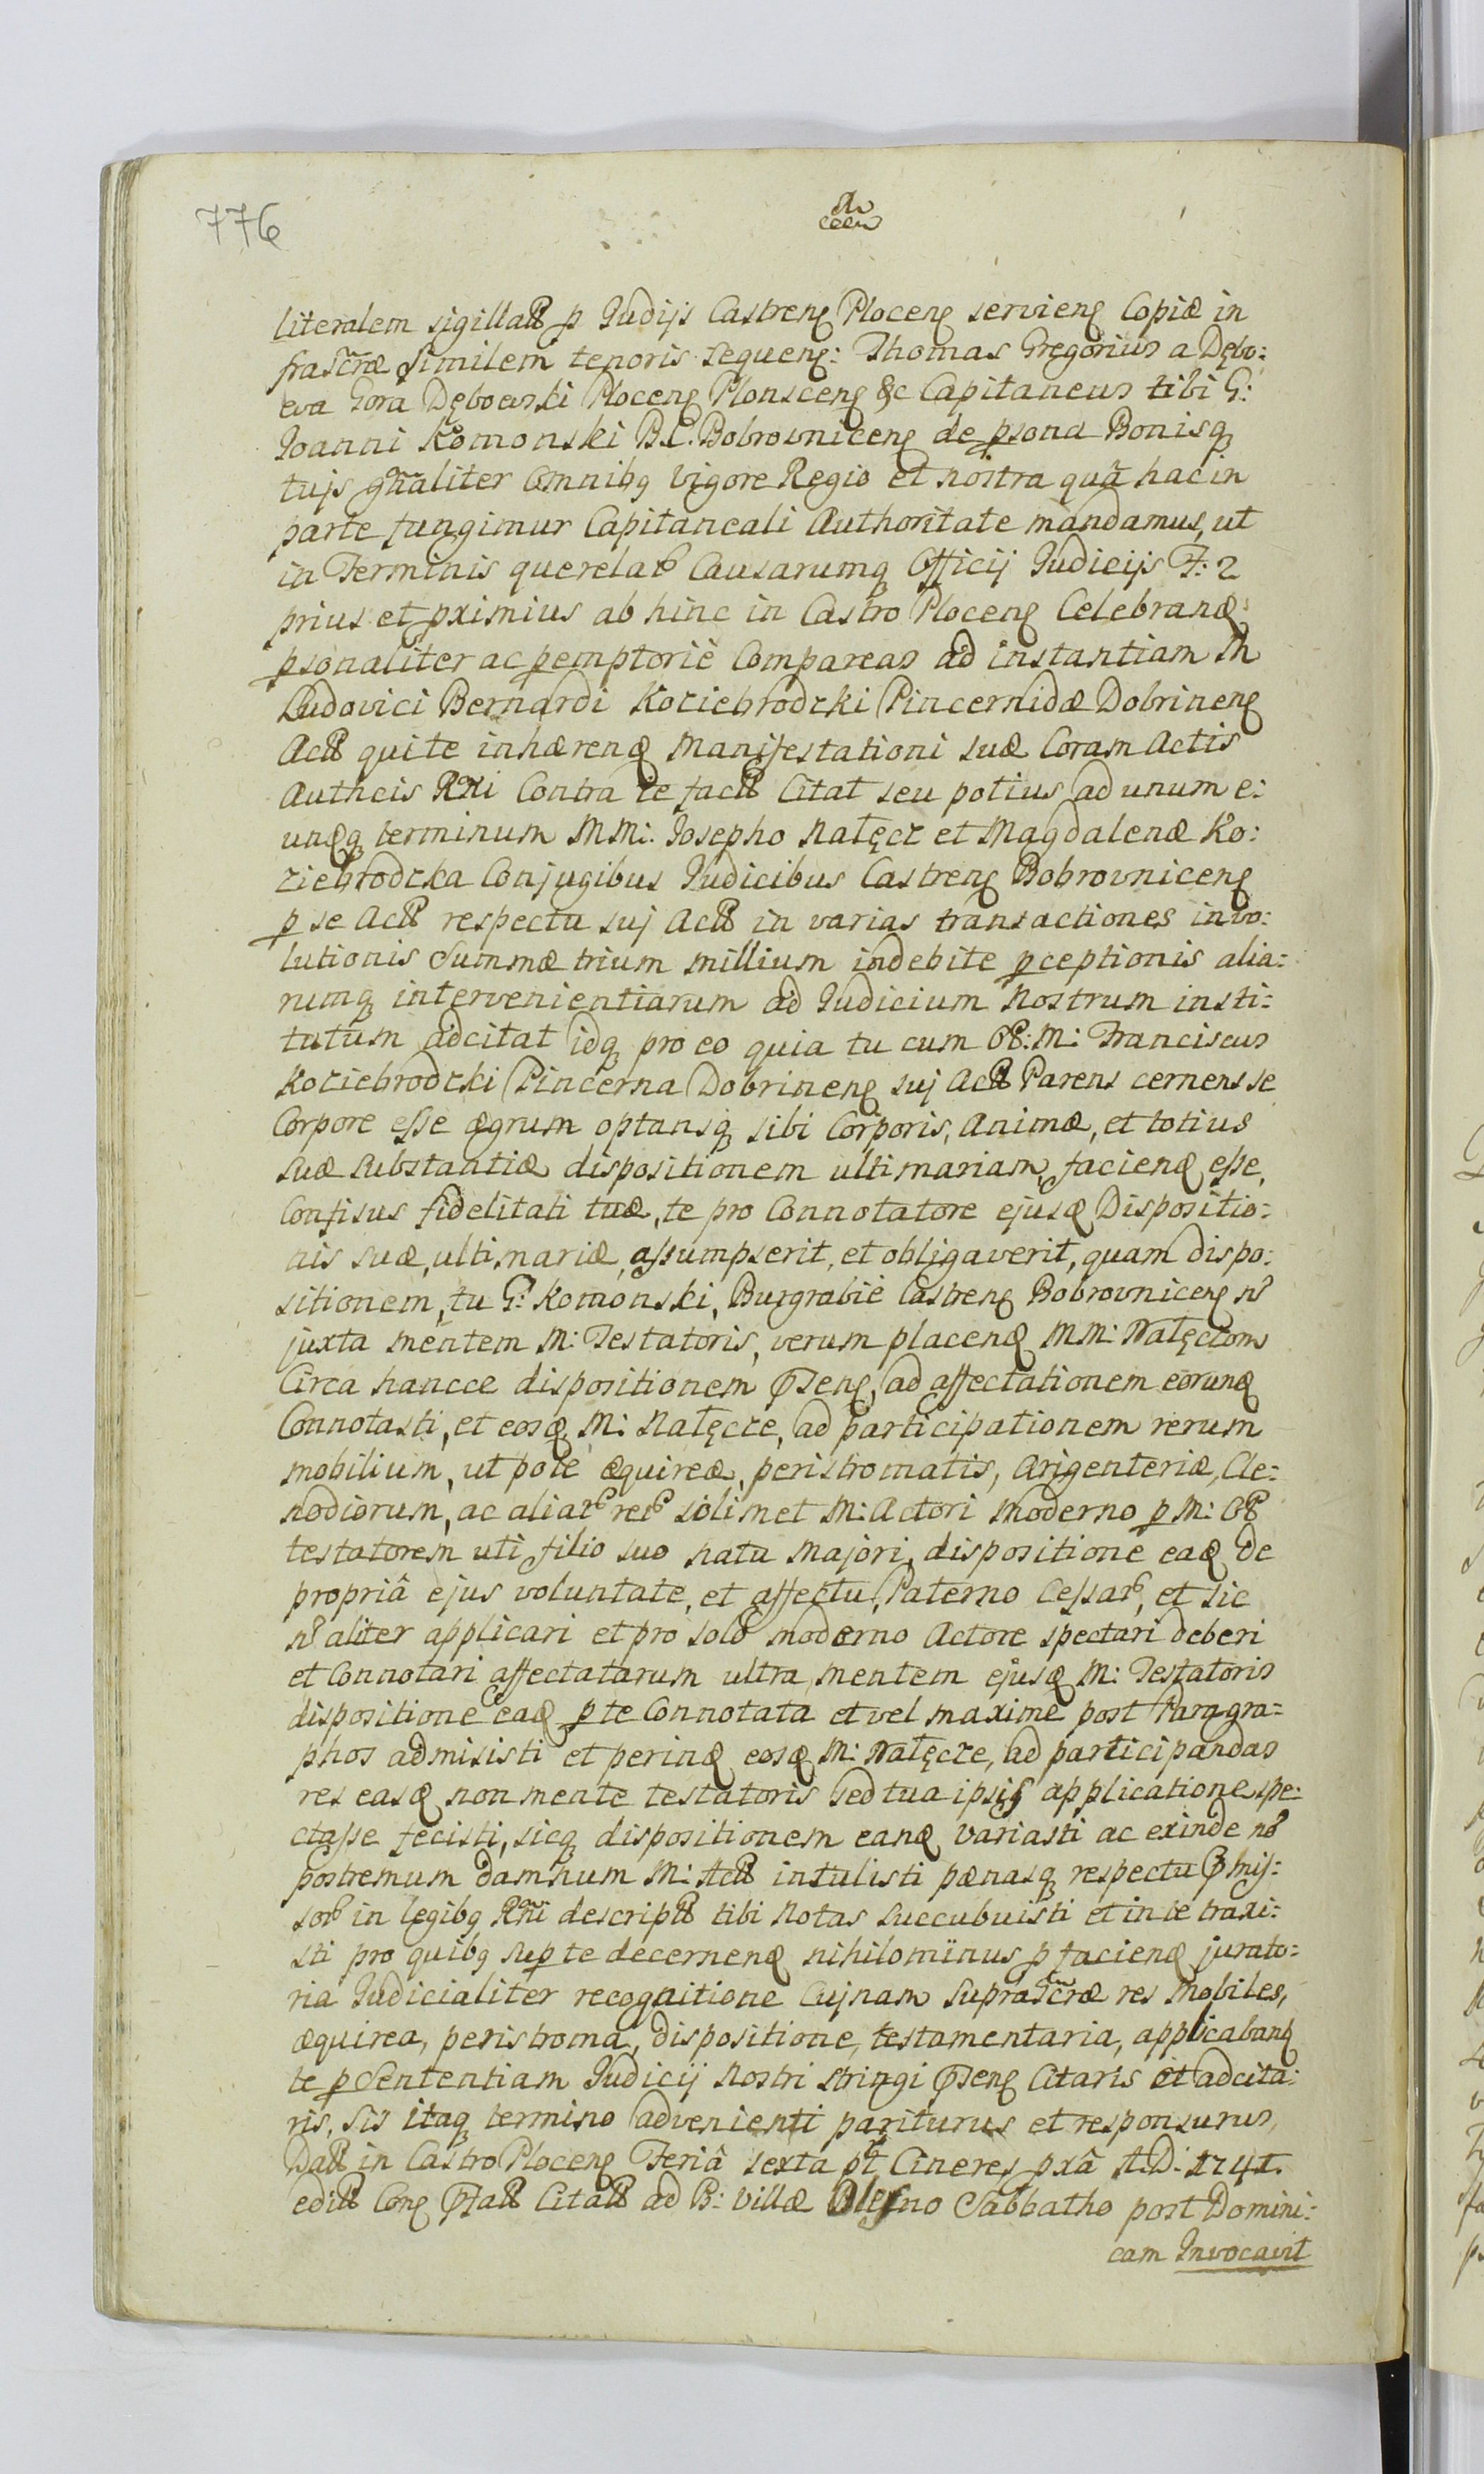 776
literalem sigillatt p Judijs Castrenę Plocenę servienę Copiæ in
frascræ similem tenoris sequenę: Thomas Gregorius a Dębo:
wa Gora Dębowski Plocenę Plonscenę &c Capitaneus tibi G:
Joanni Komonski B.C. Bobrownicenę de psona Bonisq
tujs gnaliter Omnibq Vigore Regio et nostra qua hac in
parte fungimur Capitaneali Authoritate mandamus, ut
in Terminis querelar Causarumq Officij Judicijs F: 2
prius et pximius ab hinc in Castro Plocenę Celebranq
psonaliter ac pemptoriè Compareas ad instantiam M
Ludovici Bernardi Koziebrodzki Pincernidæ Dobrinenę
Actt qui te inhærenq Manifestationi suæ Coram Actis
Authcis Rni Contra te factt Citat seu potius ad unum e:
unqq terminum MM: Josepho Nałęcz et Magdalenæ Ko:
ziebrodzka Conjugibus Judicibus Castrenę Bobrownicenę
p se Actt respectu suj Actt in varias transactiones invo:
lutionis Summæ trium millium indebite pceptionis alia:
rumq intervenientiarum ad Judicium Nostrum insti:
tutum adcitat idq pro eo quia tu cum Ol: M: Franciscus
Koziebrodzki Pincerna Dobrinenę suj Actt Parens cernens se
Corpore esse ægrum optansq sibi Corporis, Animæ, et totius
suæ substantiæ dispositionem ultimariam, facienq esse,
Confisus fidelitati tuæ, te pro Connotatore ejusq Dispositio:
nis suæ, ultimariæ, assumpserit, et obligaverit, quam dispo:
sitionem, tu G: Komonski, Burgrabiè Castrenę Bobrownicenę n
juxta mentem M: Testatoris, verum placenq MM: Nałęczom
Circa hancce dispositionem pntenę, ad affectationem eorunq
Connotasti, et eosq M: Nałęcze, ad participationem rerum
mobilium, ut pote æquireæ, peristromatis, Argenteriæ, Cle:
nodiorum, ac aliar rer solimet M: Actori Moderno p M: Ol
testatorem uti filio suo natu Majori, dispositione eaq de
propriâ ejus voluntate, et affectu, Paterno Cessar, et sic
n aliter applicari et pro solo moderno Actore spectari deberi
et Connotari affectatarum ultra mentem ejusq M: Testatoris
dispositione eaq p te Connotata et vel maximè post Paragra=
phos admisisti et perinq eosq M: Nałęcze, ad participandas
res easq non mente testatoris sed tua ipsiq applicatione spe:
ctasse fecisti, sicq dispositionem eanq variasti ac exinde n
postremum damnum M: Actt intulisti pænasq respectu pmis:
sor in legibq Rni descriptt tibi Notas succubuisti et in te traxi:
sti pro quibq sup te decernenq nihilominus p facienq jurato:
ria Judicialiter recognitione Cujnam suprascræ res Mobiles,
æquirea, peristroma, dispositione, testamentaria, applicabanę
te p Sententiam Judicij Nostri stringi pntenę Citaris et adcita:
ris, sis itaq termino advenienti pariturus et responsurus
Datt in Castro Plocenę Feriâ sexta pt Cineres pxâ A.D. 1741.
editt Conę pntatt Citatt ad B: Villæ Olesno Sabbatho post Domini:
cam Invocavit